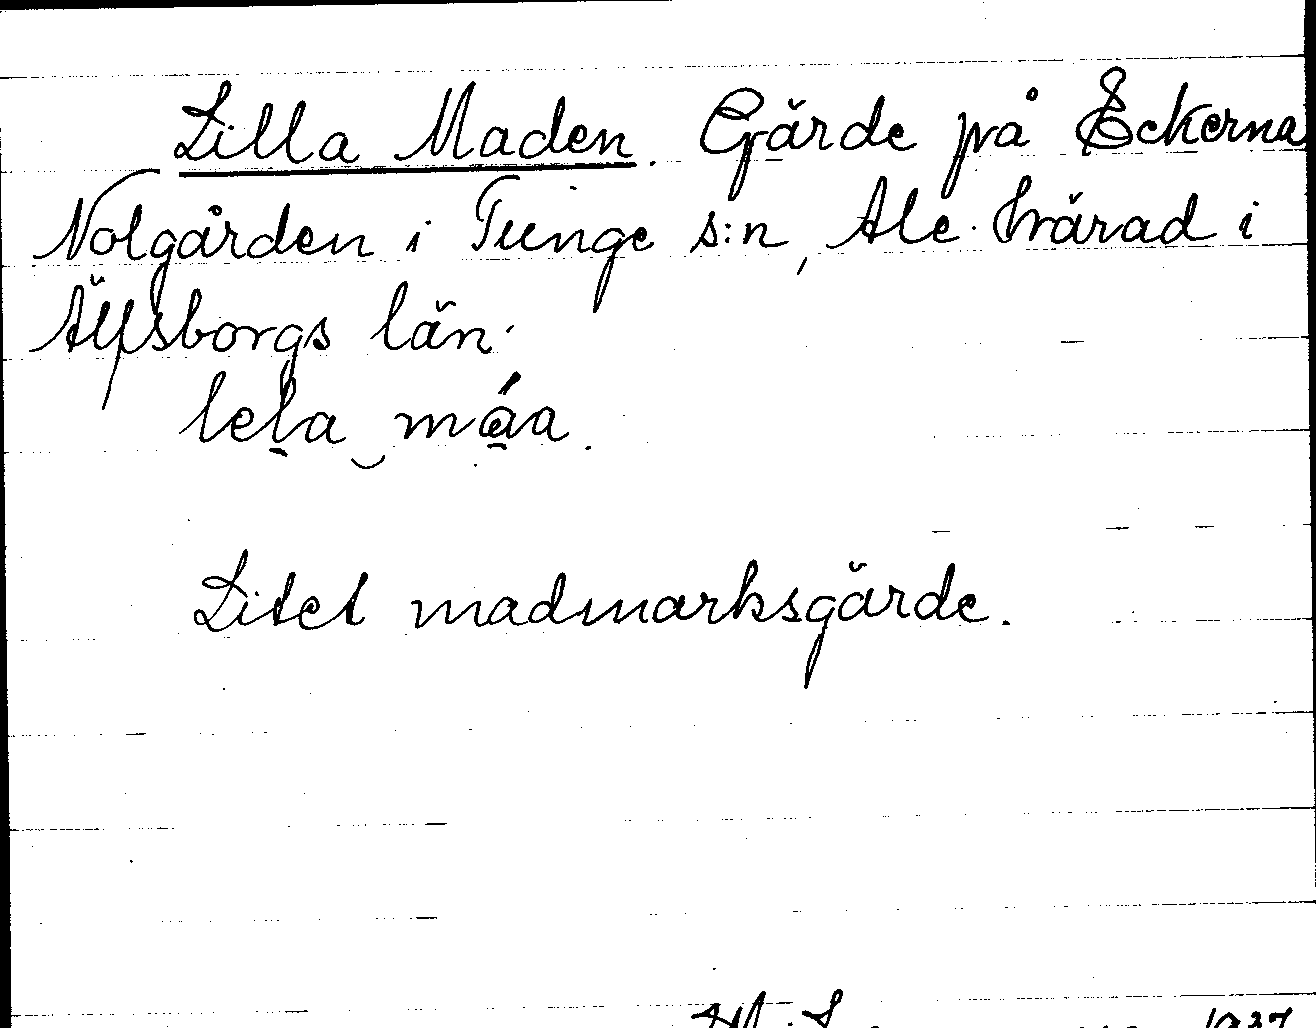 Lilla Maden. Gärde på Eckerna
Nolgården i Tunge s:n, Ale härad i
Älfsborgs län.
lela máa.
Litet madmarksgärde.